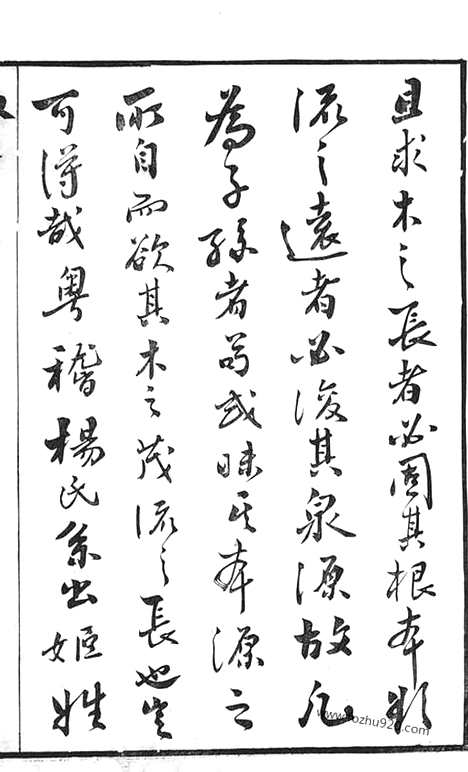 且求木之長者必固其根本欲
流之遠者必浚其泉源故凡
為子孫者苟或昧其本源之
所自而欲其木之茂流之長也豈
可得哉粵稽楊氏系出姬姓
www.zhu920.com